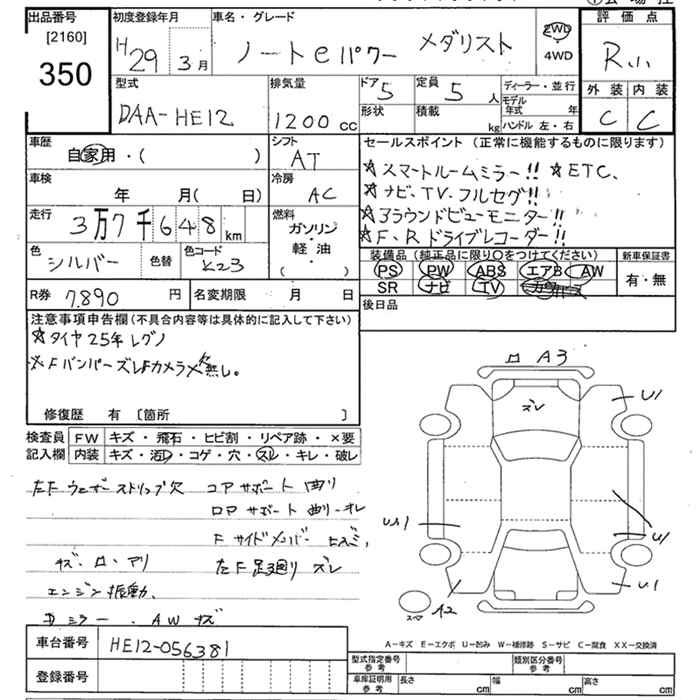 出品番号 初度登録年月 車名・グレード 評価点
[2160] H29 3月 ノートeパワー メダリスト 2WD R.
350 ・4WD
外装 内装
型式 排気量 ドア 5 定員 5人 ディーラー・並行 C C
DAA-HE12 1200cc 形状 積載 kg モデル年式 年
ハンドル左・右
車歴 シフト セールスポイント(正常に機能するものに限ります)
自家用・( ) AT ☆スマートルームミラー!! ☆ETC、
車検 冷房 ☆ナビ、TV、フルセグ!!
年 月( 日) AC ☆アラウンドビューモニター!!
走行 燃料 ☆F、Rドライブレコーダー!!
3万7千648km ガソリン・軽油・( )
色 色替 色コード 装備品(純正品に限り○をつけてください) 新車保証書
シルバー K23 PS PW ABS エアB AW 有・無
SR ナビ TV
R券 7.890円 名変期限 月 日 後日品
注意事項申告欄(不具合内容等は具体的に記入して下さい)
☆タイヤ25年レグノ
☆Fバンパーズレ Fカメラ欠無し。
修復歴 有 〔箇所 〕
検査員 FW キズ・飛石・ヒビ割・リペア跡・×要
記入欄 内装 キズ・汚レ・コゲ・穴・スレ・キレ・破レ
左F ウェザーストリップ欠 コアサポート 曲り
ロアサポート 曲り・オレ
Fサイドメンバー
キズ・ロ・アリ 左F 足廻り ズレ
エンジン振動、
ミラー、AWキズ
ロ A3
ズレ
U1
U1
U1
A2
スペア
車台番号 HE12-056381
A-キズ E-エクボ U-凹み W-補修跡 S-サビ C-腐食 XX-交換済
登録番号
型式指定番号 参考 類別区分番号 参考
車庫証明用 参考 長さ cm 幅 cm 高さ cm